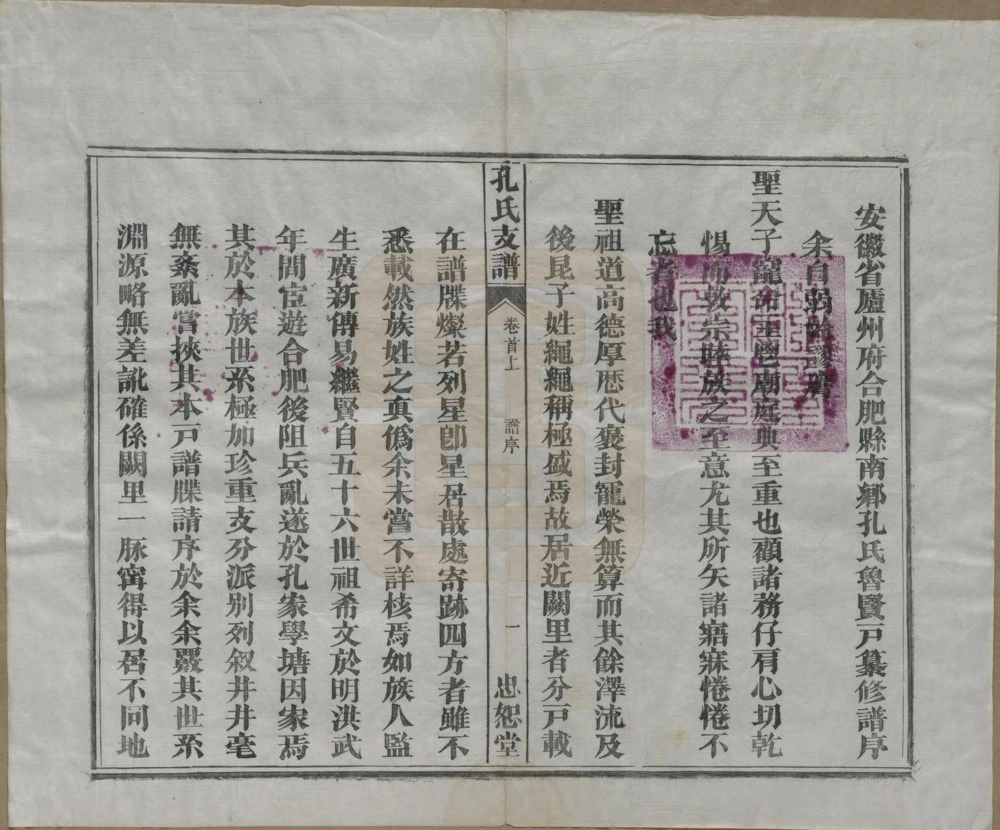 安徽省廬州府合肥縣南鄉孔氏魯賢戸纂修譜序
余自弱齡謬膺
聖天子寵命主鬯廟庭典至重也顧諸務仔肩心切乾
惕而敦宗睦族之至意尤其所矢諸寤寐惓惓不
忘者也我
聖祖道高德厚歷代褒封寵榮無算而其餘澤流及
後昆子姓繩繩稱極盛焉故居近闕里者分戸載
孔氏支譜
卷首上
譜序
一
忠恕堂
在譜牒燦若列星卽星居散處寄跡四方者雖不
悉載然族姓之真僞余未嘗不詳核焉如族人監
生廣新傳易繼賢自五十六世祖希文於明洪武
年間宦遊合肥後阻兵亂遂於孔家學塘因家焉
其於本族世系極加珍重支分派別列叙井井毫
無紊亂嘗挾其本戸譜牒請序於余余覈其世系
淵源略無差訛確係闕里一脉甯得以居不同地